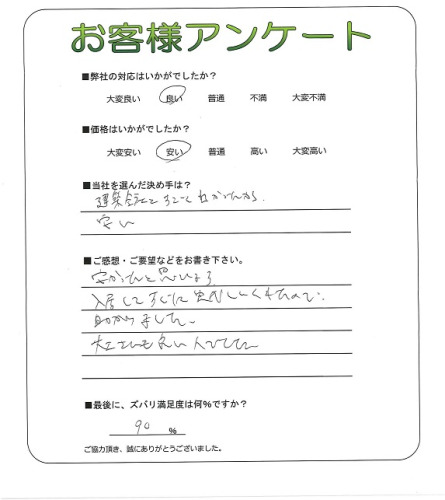 お客様アンケート
■弊社の対応はいかがでしたか？
大変良い 良い 普通 不満 大変不満
■価格はいかがでしたか？
大変安い 安い 普通 高い 大変高い
■当社を選んだ決め手は？
建築会社と
安い
■ご感想・ご要望などをお書き下さい。
と思いました
入居してすぐに
助かりました。
大工さんも良い人でした
■最後に、ズバリ満足度は何％ですか？
90 ％
ご協力頂き、誠にありがとうございました。